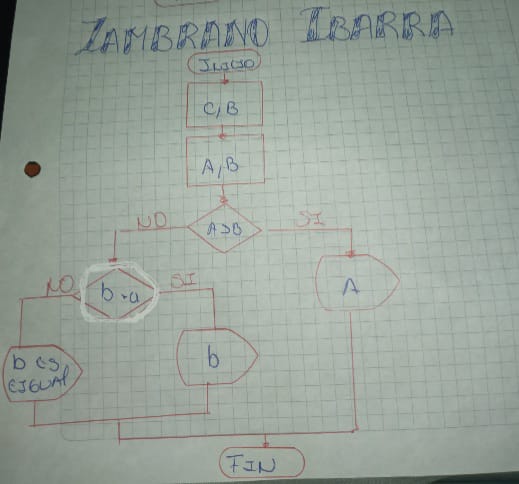 ZAMBRANO IBARRA
INICIO
C,B
A,B
NO
A>B
SI
NO
b>a
SI
A
b es
EIGUAL
b
FIN